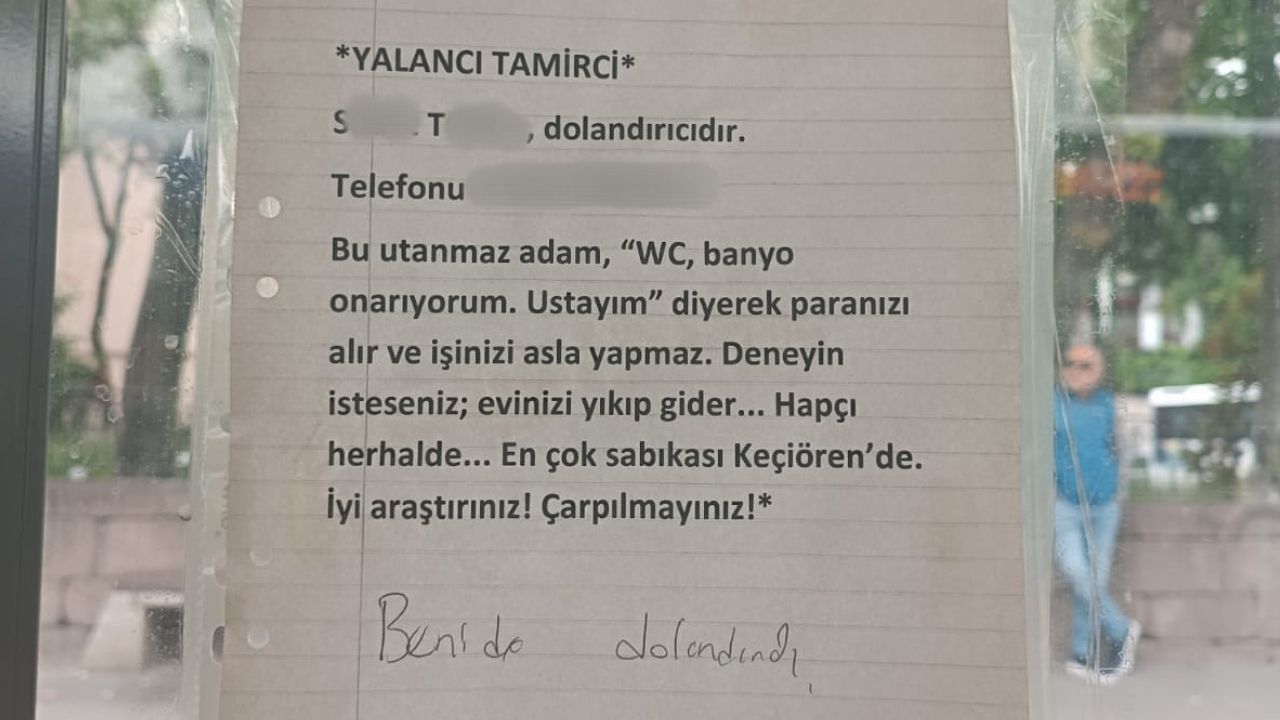 *YALANCI TAMİRCİ*
S T , dolandırıcıdır.
Telefonu
Bu utanmaz adam, “WC, banyo
onarıyorum. Ustayım” diyerek paranızı
alır ve işinizi asla yapmaz. Deneyin
isteseniz; evinizi yıkıp gider... Hapçı
herhalde... En çok sabıkası Keçiören’de.
İyi araştırınız! Çarpılmayınız!*
Beni de dolandırdı,